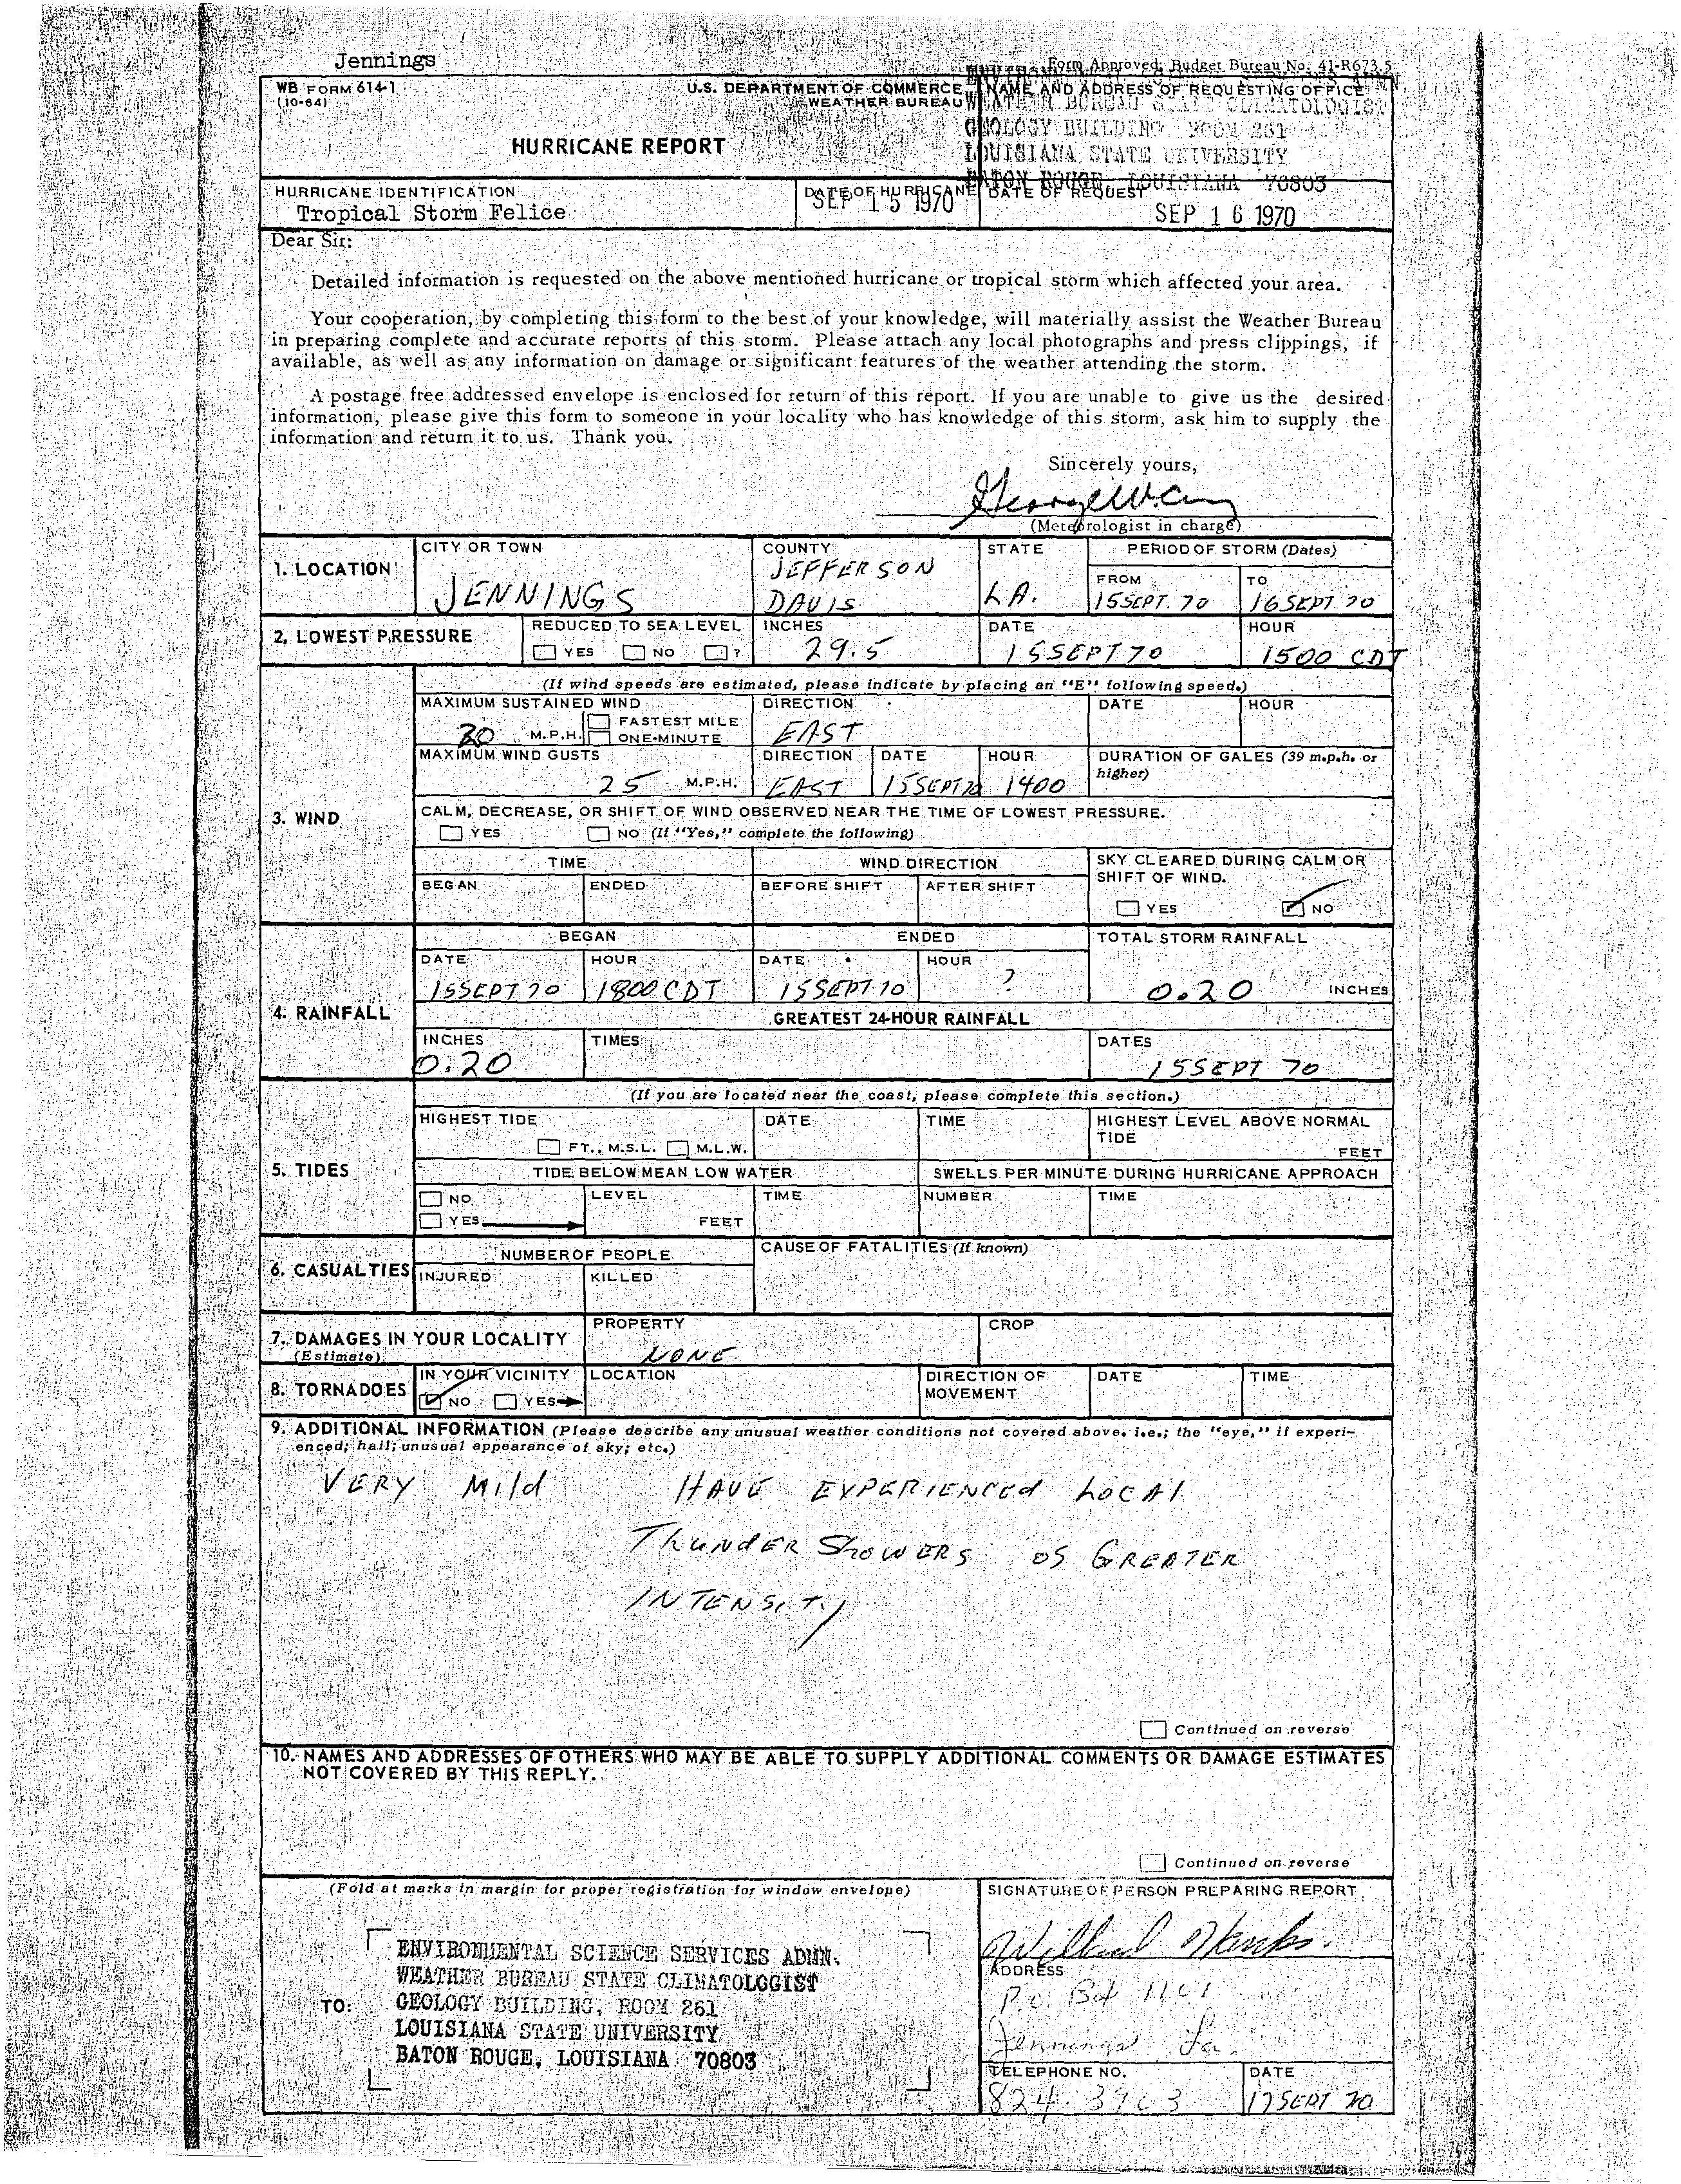 Jennings
Form Approved; Budget Bureau No. 41-R673.5
WB FORM 614-1
(10-64)
U.S. DEPARTMENT OF COMMERCE
WEATHER BUREAU
NAME AND ADDRESS OF REQUESTING OFFICE
WEATHER BUREAU STATE CLIMATOLOGIST
GEOLOGY BUILDING, ROOM 261
LOUISIANA STATE UNIVERSITY
BATON ROUGE, LOUISIANA 70803
HURRICANE REPORT
HURRICANE IDENTIFICATION
Tropical Storm Felice
DATE OF HURRICANE
SEP 15 1970
DATE OF REQUEST
SEP 16 1970
Dear Sir:
Detailed information is requested on the above mentioned hurricane or tropical storm which affected your area.
Your cooperation, by completing this form to the best of your knowledge, will materially assist the Weather Bureau
in preparing complete and accurate reports of this storm. Please attach any local photographs and press clippings, if
available, as well as any information on damage or significant features of the weather attending the storm.
A postage free addressed envelope is enclosed for return of this report. If you are unable to give us the desired
information, please give this form to someone in your locality who has knowledge of this storm, ask him to supply the
information and return it to us. Thank you.
Sincerely yours,
(Meteorologist in charge)
1. LOCATION
CITY OR TOWN
JENNINGS
COUNTY
JEFFERSON
DAVIS
STATE
LA.
PERIOD OF STORM (Dates)
FROM
15 SEPT. 70
TO
16 SEPT 70
2. LOWEST PRESSURE
REDUCED TO SEA LEVEL
YES NO ?
INCHES
29.5
DATE
15 SEPT 70
HOUR
1500 CDT
3. WIND
(If wind speeds are estimated, please indicate by placing an "E" following speed.)
MAXIMUM SUSTAINED WIND
20 M.P.H.
FASTEST MILE
ONE-MINUTE
DIRECTION
EAST
DATE
HOUR
MAXIMUM WIND GUSTS
25 M.P.H.
DIRECTION
EAST
DATE
15 SEPT 70
HOUR
1400
DURATION OF GALES (39 m.p.h. or
higher)
CALM, DECREASE, OR SHIFT OF WIND OBSERVED NEAR THE TIME OF LOWEST PRESSURE.
YES NO (If "Yes," complete the following)
TIME
BEGAN
ENDED
WIND DIRECTION
BEFORE SHIFT
AFTER SHIFT
SKY CLEARED DURING CALM OR
SHIFT OF WIND.
YES NO
4. RAINFALL
BEGAN
DATE
15 SEPT 70
HOUR
1800 CDT
ENDED
DATE
15 SEPT 70
HOUR
?
TOTAL STORM RAINFALL
0.20 INCHES
GREATEST 24-HOUR RAINFALL
INCHES
0.20
TIMES
DATES
15 SEPT 70
5. TIDES
(If you are located near the coast, please complete this section.)
HIGHEST TIDE
FT., M.S.L. M.L.W.
DATE
TIME
HIGHEST LEVEL ABOVE NORMAL
TIDE
FEET
TIDE BELOW MEAN LOW WATER
NO
YES
LEVEL
FEET
TIME
SWELLS PER MINUTE DURING HURRICANE APPROACH
NUMBER
TIME
6. CASUALTIES
NUMBER OF PEOPLE
INJURED
KILLED
CAUSE OF FATALITIES (If known)
7. DAMAGES IN YOUR LOCALITY
(Estimate)
PROPERTY
NONE
CROP
8. TORNADOES
IN YOUR VICINITY
NO YES
LOCATION
DIRECTION OF
MOVEMENT
DATE
TIME
9. ADDITIONAL INFORMATION (Please describe any unusual weather conditions not covered above. i.e.; the "eye," if experi-
enced; hail; unusual appearance of sky; etc.)
VERY Mild HAVE EXPERIENCEd LOCAl
ThUNdER ShOWERS OS GREATER
INTENSITy
Continued on reverse
10. NAMES AND ADDRESSES OF OTHERS WHO MAY BE ABLE TO SUPPLY ADDITIONAL COMMENTS OR DAMAGE ESTIMATES
NOT COVERED BY THIS REPLY.
Continued on reverse
(Fold at marks in margin for proper registration for window envelope)
TO:
ENVIRONMENTAL SCIENCE SERVICES ADMN.
WEATHER BUREAU STATE CLIMATOLOGIST
GEOLOGY BUILDING, ROOM 261
LOUISIANA STATE UNIVERSITY
BATON ROUGE, LOUISIANA 70803
SIGNATURE OF PERSON PREPARING REPORT
ADDRESS
P.O. Box
Jennings La.
TELEPHONE NO.
824
DATE
17 SEPT 70